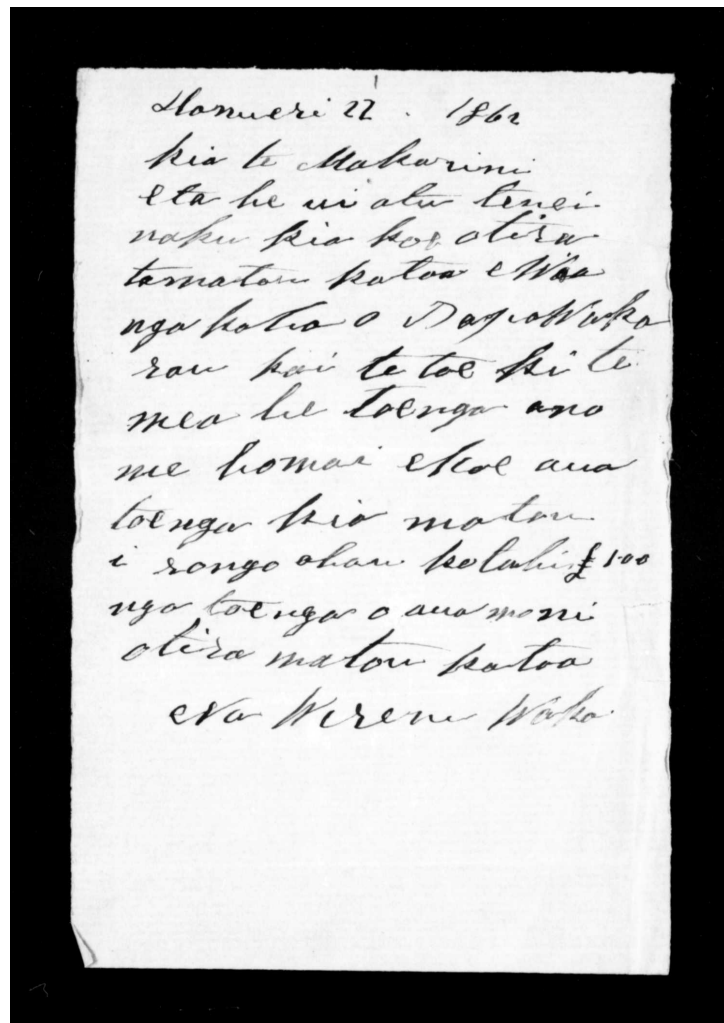 Hanueri 22. 1862
kia te Makarini
eta he ui atu tenei
naku kia koe otira
tamatou katoa
nga katoa o
rau kai te toe ki te
mea he toenga ano
me homai ekoe aua
toenga kia matou
i rongo ahau kotahi £100
nga toenga o aua moni
otira matou katoa
Na Wiremu Waka